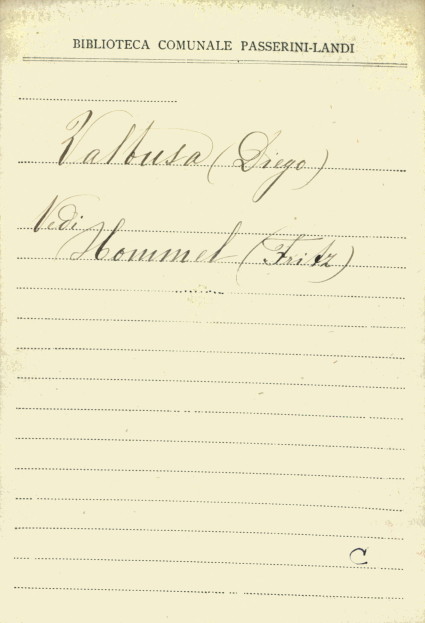 BIBLIOTECA COMUNALE PASSERINI-LANDI
Valbusa (Diego)
Vedi
Hommel (Fritz)
C